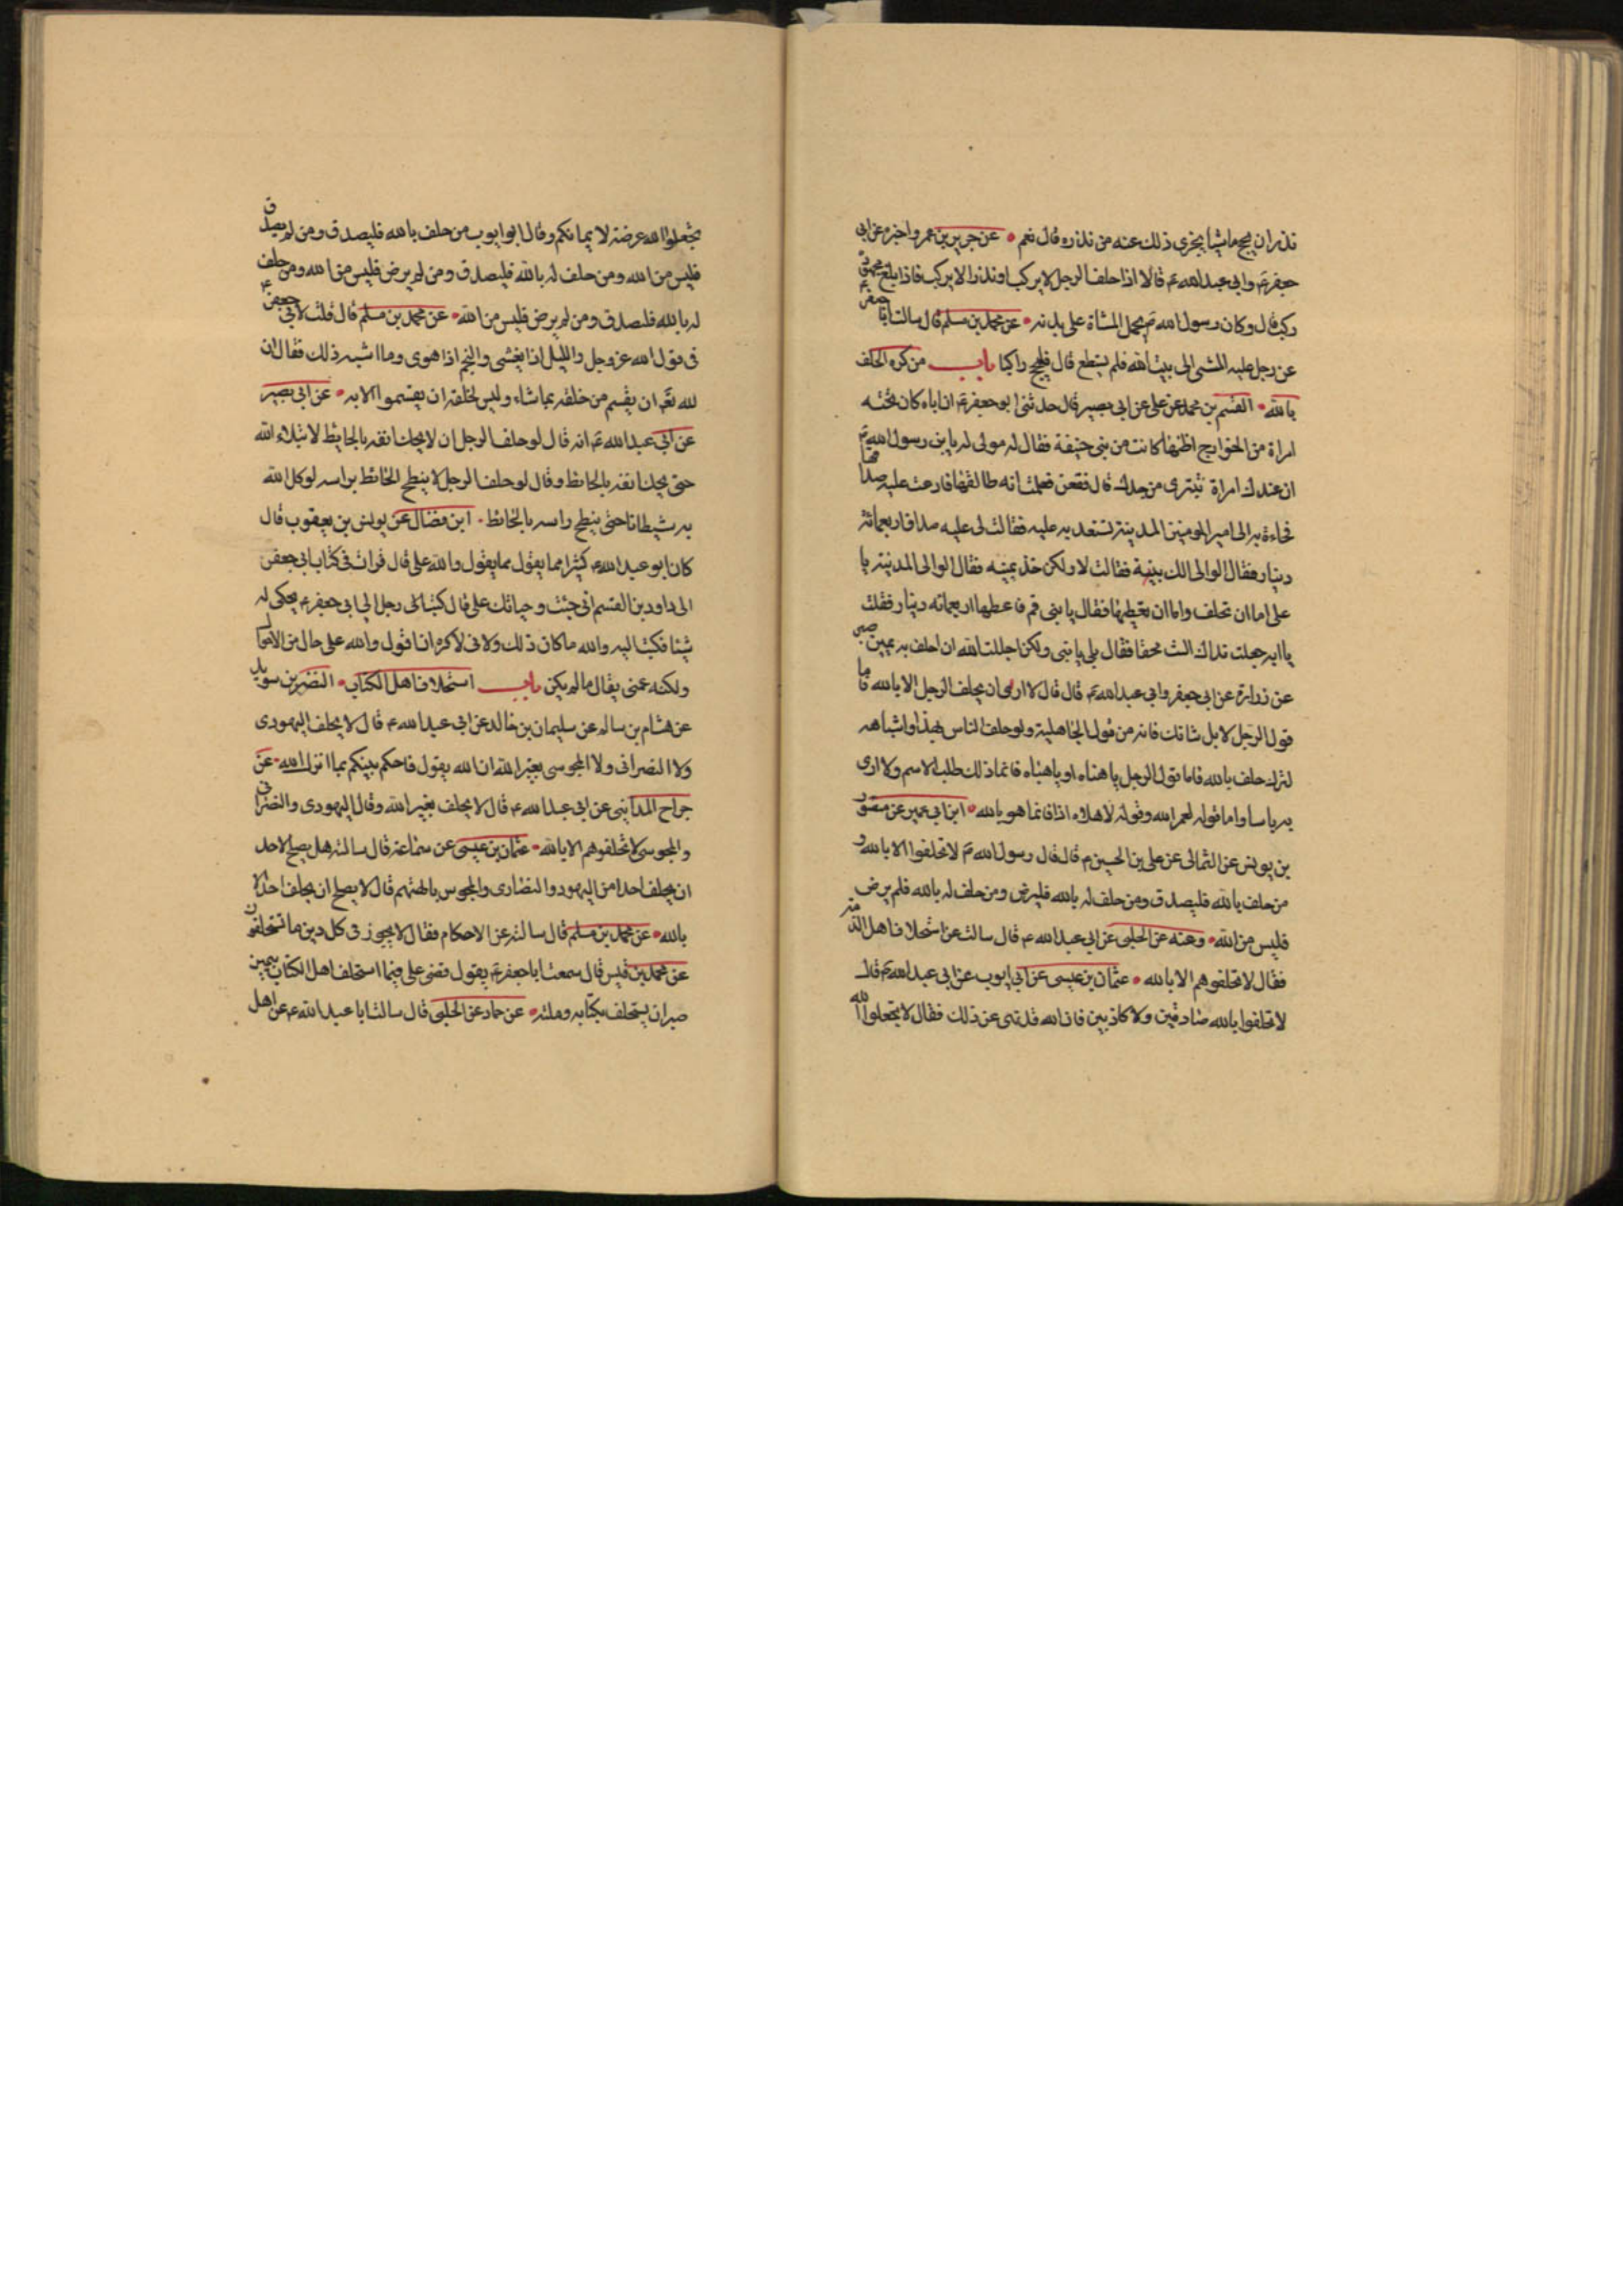 نذر ان يحج ماشيا يجزى ذلك عنه من نذره قال نعم • عن حريز بن عمر واخبره عن ابى
جعفر ع وابى عبد الله ع قالا اذا حلف الرجل لا يركب او نذر الا يركب فاذا بلغ مجهوده
ركب قال وكان رسول الله ص يحمل المشاة على بدنه • عن محمد بن مسلم قال سالت ابا جعفر ع
عن رجل عليه المشى الى بيت الله فلم يستطع قال فليحج راكبا باب من كره الحلف
بالله • القسم بن محمد عن على عن ابى بصير قال حدثنى ابو جعفر ع ان اباه كان تحته
امراة من الخوارج اظنها كانت من بنى حنيفة فقال له مولى له يابن رسول الله ص
ان عندك امراة تتبرى من جدك قال فقعن فعلمت انه طالقها فادعت عليه صداقها
فجاءة به الى امير المومنين المدينة تستعديه عليه فقالت لى عليه صداق اربعمائة
دينار فقال الوالى الك بينة فقالت لا ولكن خذ يمينه فقال الوالى المدينة يا
على اما ان تحلف واما ان تعطيها فقال يا بنى قم فاعطها اربعمائه دينار فقلت
يا ابه جعلت فداك الست محقا فقال بلى يا بنى ولكن اجللت الله ان احلف به يمين صبر
عن زرارة عن ابى جعفر وابى عبد الله ع قال قال لا ارى ان يحلف الرجل الا بالله فاما
قول الرجل لا بل شانك فانه من قول الجاهلية ولو حلف الناس بهذا واشباهه
لترك حلف بالله فاما قول الرجل ياهناه او ياهناه فانما ذلك طلب الاسم ولا ارى
به باسا واما قوله لعمر الله وقوله لاهلاه اذا فانما هو بالله • ابن ابى عمير عن منصور
بن يونس عن الثمالى عن على بن الحسين ع قال قال رسول الله ص لا تحلفوا الا بالله و
من حلف بالله فليصدق ومن حلف له بالله فليرض ومن حلف له بالله فلم يرض
فليس من الله • وعنه عن الحلبى عن ابى عبد الله ع قال سالت عن استحلاف اهل الذمة
فقال لا تحلفوهم الا بالله • عثمان بن عيسى عن ابى ايوب عن ابى عبد الله ع قال
لا تحلفوا بالله صادقين ولا كاذبين فان الله قد نهى عن ذلك فقال لا تجعلوا الله
تجعلوا الله عرضة لايمانكم وقال ابو ايوب من حلف بالله فليصدق ومن لم يصدق
فليس من الله ومن حلف له بالله فليصدق ومن لم يرض فليس من الله ومن حلف
له بالله فليصدق ومن لم يرض فليس من الله • عن محمد بن مسلم قال قلت لابى جعفر ع
فى قول الله عز وجل والليل اذا يغشى والنجم اذا هوى وما اشبه ذلك فقال ان
لله تعم ان يقسم من خلقه بما شاء وليس لخلقه ان يقسموا الا به • عن ابى بصير
عن ابى عبد الله ع انه قال لو حلف الرجل ان لا يحك انفه بالحايط لابتلاه الله
حتى يحك انفه بالحائط وقال لو حلف الرجل لا ينطح الحائط براسه لوكل الله
به شيطانا حتى ينطح راسه بالحائط • ابن فضال عن يونس بن يعقوب قال
كان ابو عبد الله ع كثيرا مما يقول مما يقول والله على قال قرات فى كتاب ابى جعفر
الى داود بن القسم انى جئت وحياتك على قال كتب الى رجل الى ابى جعفر ع يحكى له
شيئا فكتب اليه والله ما كان ذلك ولانى لاكره ان اقول والله على حال من الاحوال
ولكنه عمنى يقال ما لم يكن باب استحلاف اهل الكتاب • النضر بن سويد
عن هشام بن سالم عن سليمان بن خالد عن ابى عبد الله ع قال لا يحلف اليهودى
ولا النصرانى ولا المجوسى بغير الله ان الله يقول فاحكم بينكم بما انزل الله • عن
جراح المداينى عن ابى عبد الله ع قال لا يحلف بغير الله وقال اليهودى والنصرانى
والمجوسى لا تحلفوهم الا بالله • عثمان بن عيسى عن سماعة قال سالته هل يصلح لاحد
ان يحلف احدا من اليهود والنصارى والمجوس بالهتهم قال لا يصلح ان يحلف احدا الا
بالله • عن محمد بن مسلم قال سالته عن الاحكام فقال لا يجوز فى كل دين ما تستحلفون
عن محمد بن قيس قال سمعت ابا جعفر ع يقول قضى على فيما استحلف اهل الكتاب بيمين
صبر ان يستحلف بكتابه وملته • عن حماد عن الحلبى قال سالت ابا عبد الله ع عن اهل